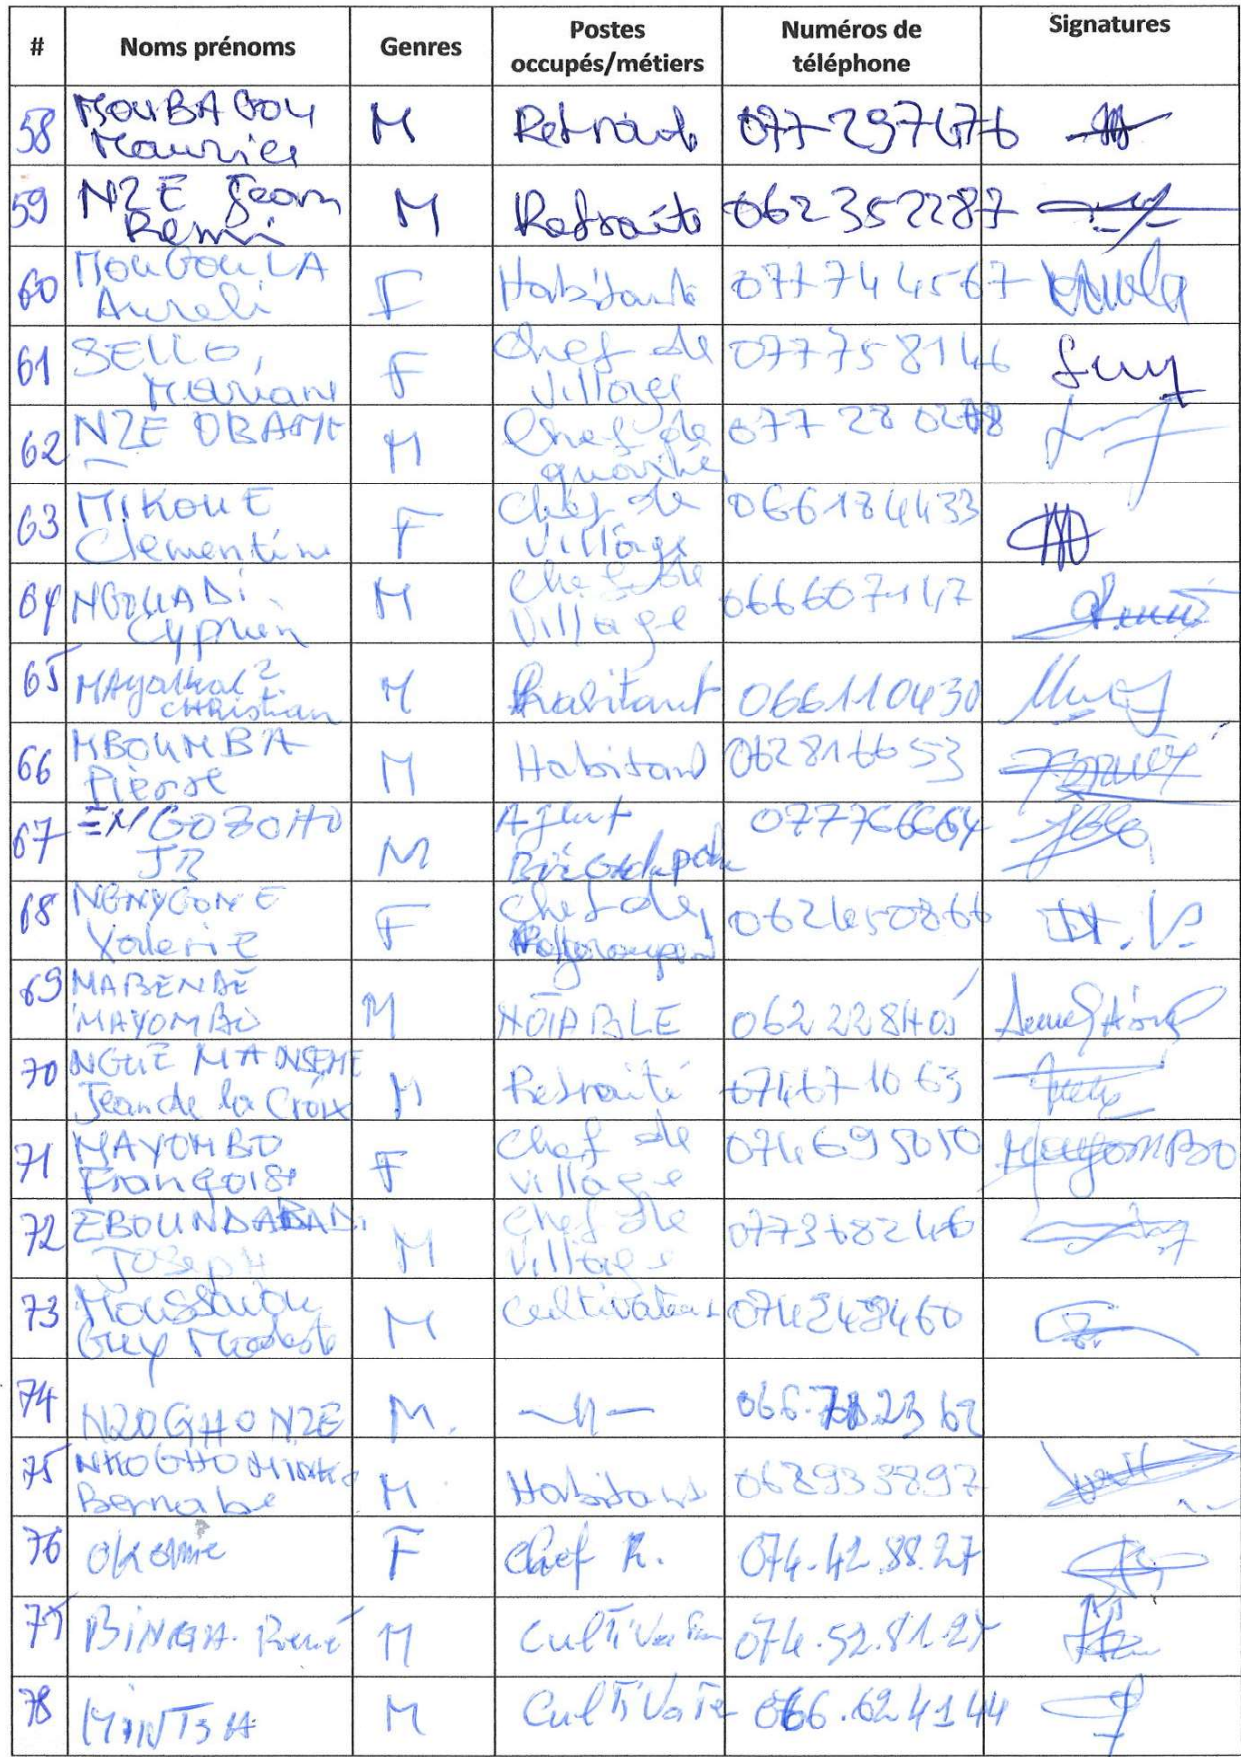 # Noms prénoms Genres Postes occupés/métiers Numéros de téléphone Signatures
58 MOUBAGOU Maurice M Retraité 077297476
59 NZE Jean Remi M Retraité 062352287
60 MOUGOULA Aureli F Habitante 077744567
61 SELLO, Mariane F Chef de Village 077758146
62 NZE OBAME M Chef de quartier 077280278
63 MIKOUE Clementine F Chef de Village 066184433
64 NGOUADI Cyprien M Chef de Village 066607147
65 Christian M habitant 066110430
66 MBOUMBA Pierre M Habitant 062816653
67 ENGOZOHO JR M Agent 077766664
68 Valerie F Chef de Regroupement 062450866
69 MABENDE MAYOMBO M NOTABLE 062228405
70 NGUE MANSEME Jean de la Croix M Retraité 074671063
71 MAYOMBO Françoise F Chef de village 074695050 MayOMBO
72 Joseph M Chef de Village 077368246
73 Moussavou Guy Modeste M Cultivateur 074249460
74 NZOGHO NZE M. —//— 066.78.23 62
75 NKOGHO MINKO Bernabe M Habitant 062933297
76 Okome F Chef R. 074.42.88.27
77 BINGA René M Cultivateur 074.52.81.27
78 MINTSA M Cultivate 066.624144